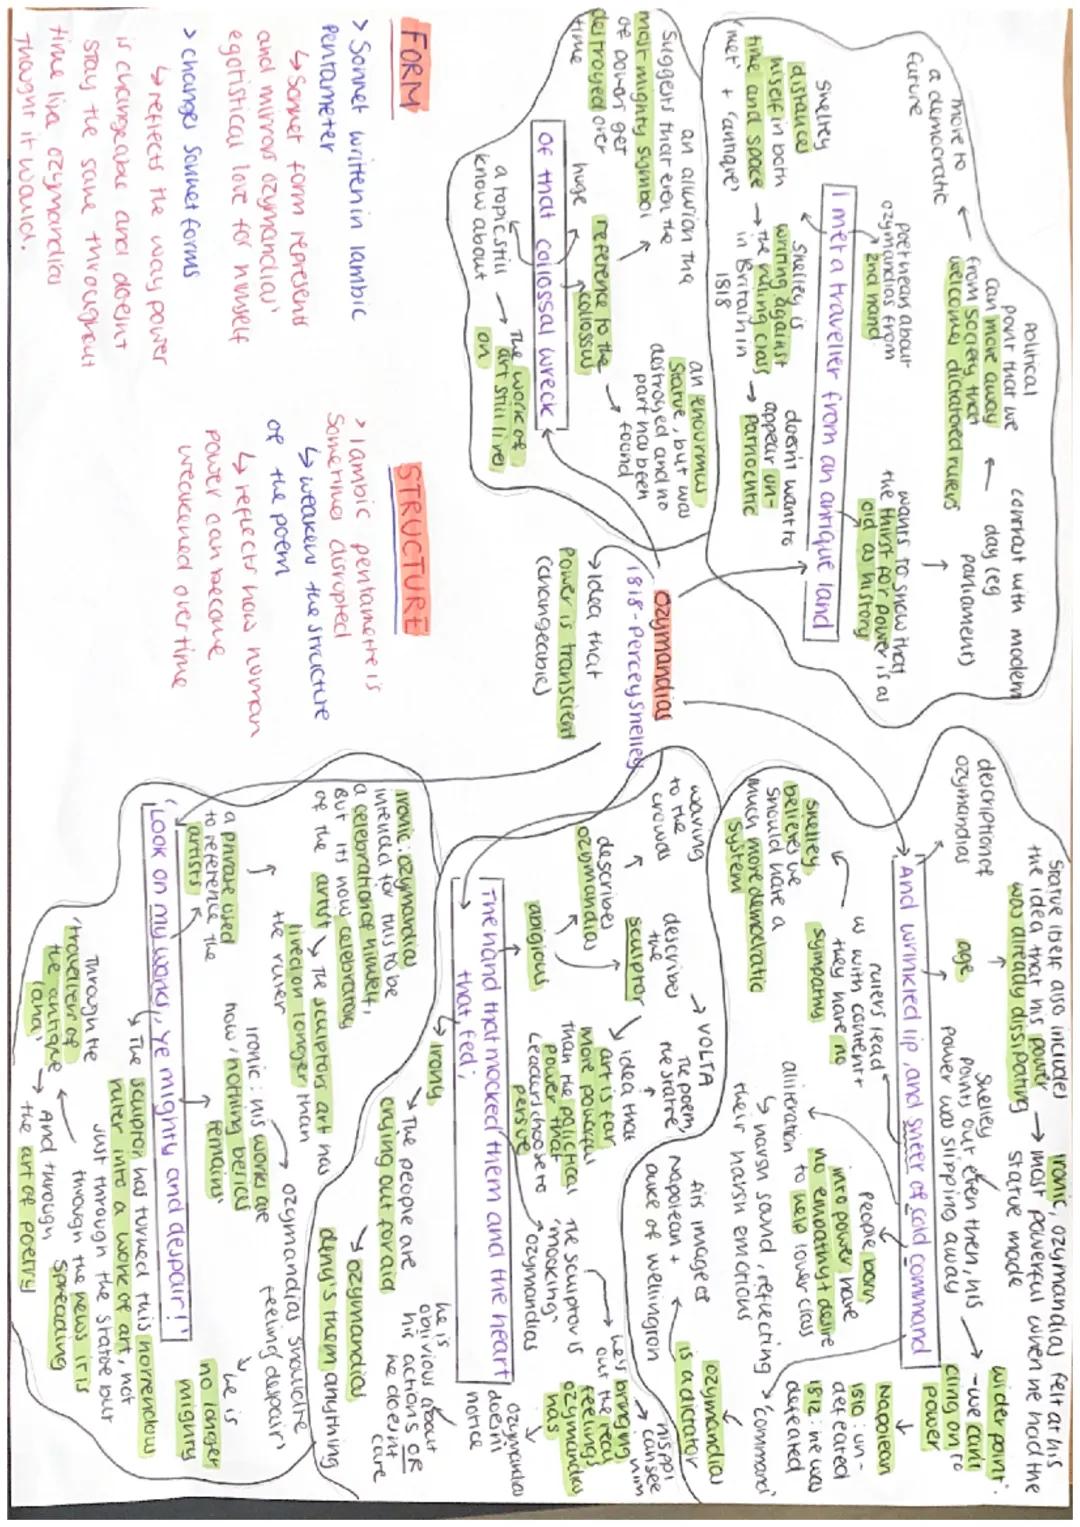 Ozymandias
1818 - Percey Shelley
↳ Idea that
Power is transcient
(changeable)
I met a traveller from an antique land
Political
point that we
can move away
from society that
welcomes dictatored rulers
more to
a democratic
future
contrast with modern
day (eg
parliament)
poet hean about
ozymandias from
2nd hand
wants to show that
the thirst for power is as
old as history
Shelley
distances
hiself in both
time and space
'met' + 'antique'
Shelley is
writing against
→ the ruling class
in Britain in
1818
doesn't want to
appear un-
→ patriochtic
of that collossal wreck
an allusion the
Suggests that even the
most mighty symbol
of power get
destroyed over
time
huge
reference to the
collossus
an enourmus
statue, but was
destroyed and no
part has been
found
a topic still
know about
→ The work of
art still lives
on
And wrinkled lip, and sneer of cold command
Statue itself also includes
the idea that his power
was already dissipating
Ironic, ozymandias felt at his
→ most powerful when he hold the
statue made
description of
ozymandias
age
Shelley
points out even then, his
power was slipping away
wider point:
- we cant
cling on to
power
Shelley
believes we
should have a
much more democratic
system
rulers lead
us with contempt
they have no
sympathy
People born
into power have
no empathy + desire
to help lower class
alliteration
↳ harsh sound, reflecting
their harsh emotions
'command'
Napolean
↓
1810: un-
defeated
1812: he was
defeated
ozymandias
is a dictator
airs image of
Napolean +
duke of wellington
The hand that mocked them and the heart
that fed;
waving
to the
crowds
describes
ozymandias
describes
the
sculptor
abigious
→ VOLTA
The poem,
the statue
↓ idea that
art is far
more powerful
than the polictical
power that
Leaders choose to
persue
→ ozymandias
the sculptor is
'mocking'
→ he's bringing
out the real
feelings
ozymandias
has
→ can see
him
ozymandias
doesnt
notice
he is
oblivious about
his actions OR
he doesn't
care
↳ Irony
↘ The people are
crying out for aid
↘ ozymandias
denys them anything
'Look on my works, Ye mighty and despair!'
Ironic: ozymandias
intended for this to be
a celebration of himself,
But its now celebrating
of the artist
↘ The sculptors art has
lived on longer than
the ruler
a phrase used
to reference the
artists
Ironic: his works are
now, 'nothing beside
remains'
ozymandias should be
feeling despair,
↘ he is
no longer
mighty
↳ The sculptor has turned this horrendous
ruler into a work of art, not
just through the statue but
through the news it is
spreading
Through the
'traveller of
the antique
land'
→ And through
the art of poetry
FORM
> Sonnet written in Iambic
Pentameter
↳ Sonnet form represents
and mirrors ozymandias'
egotistical love for himself
> changes Sonnet forms
↳ reflects the way power
is changeable and doesnt
stay the same throughout
time like ozymandias
thought it would.
STRUCTURE
> Iambic pentametre is
Sometimes disrupted
↳ weakens the structure
of the poem
↳ reflects how human
power can become
weakened over time